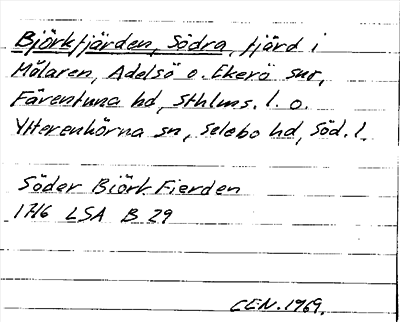 Björkfjärden, Södra, fjärd i
Mälaren, Adelsö o. Ekerö snr,
Färentuna hd, Sthlms. l. o.
Ytterenhörna sn, Selebo hd, Söd. l.
Söder Biörk Fierden
1746 LSA B 29
CEN. 1969.